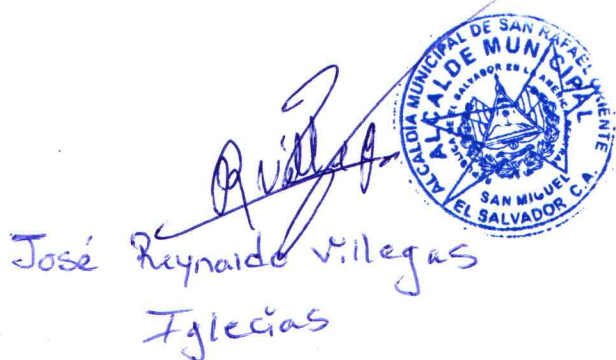 ALCALDIA MUNICIPAL DE SAN RAFAEL ORIENTE
ALCALDE MUNICIPAL
REPUBLICA DE EL SALVADOR EN LA AMERICA CENTRAL
SAN MIGUEL
EL SALVADOR C.A.
RVillegas
José Reynaldo Villegas
Iglecias